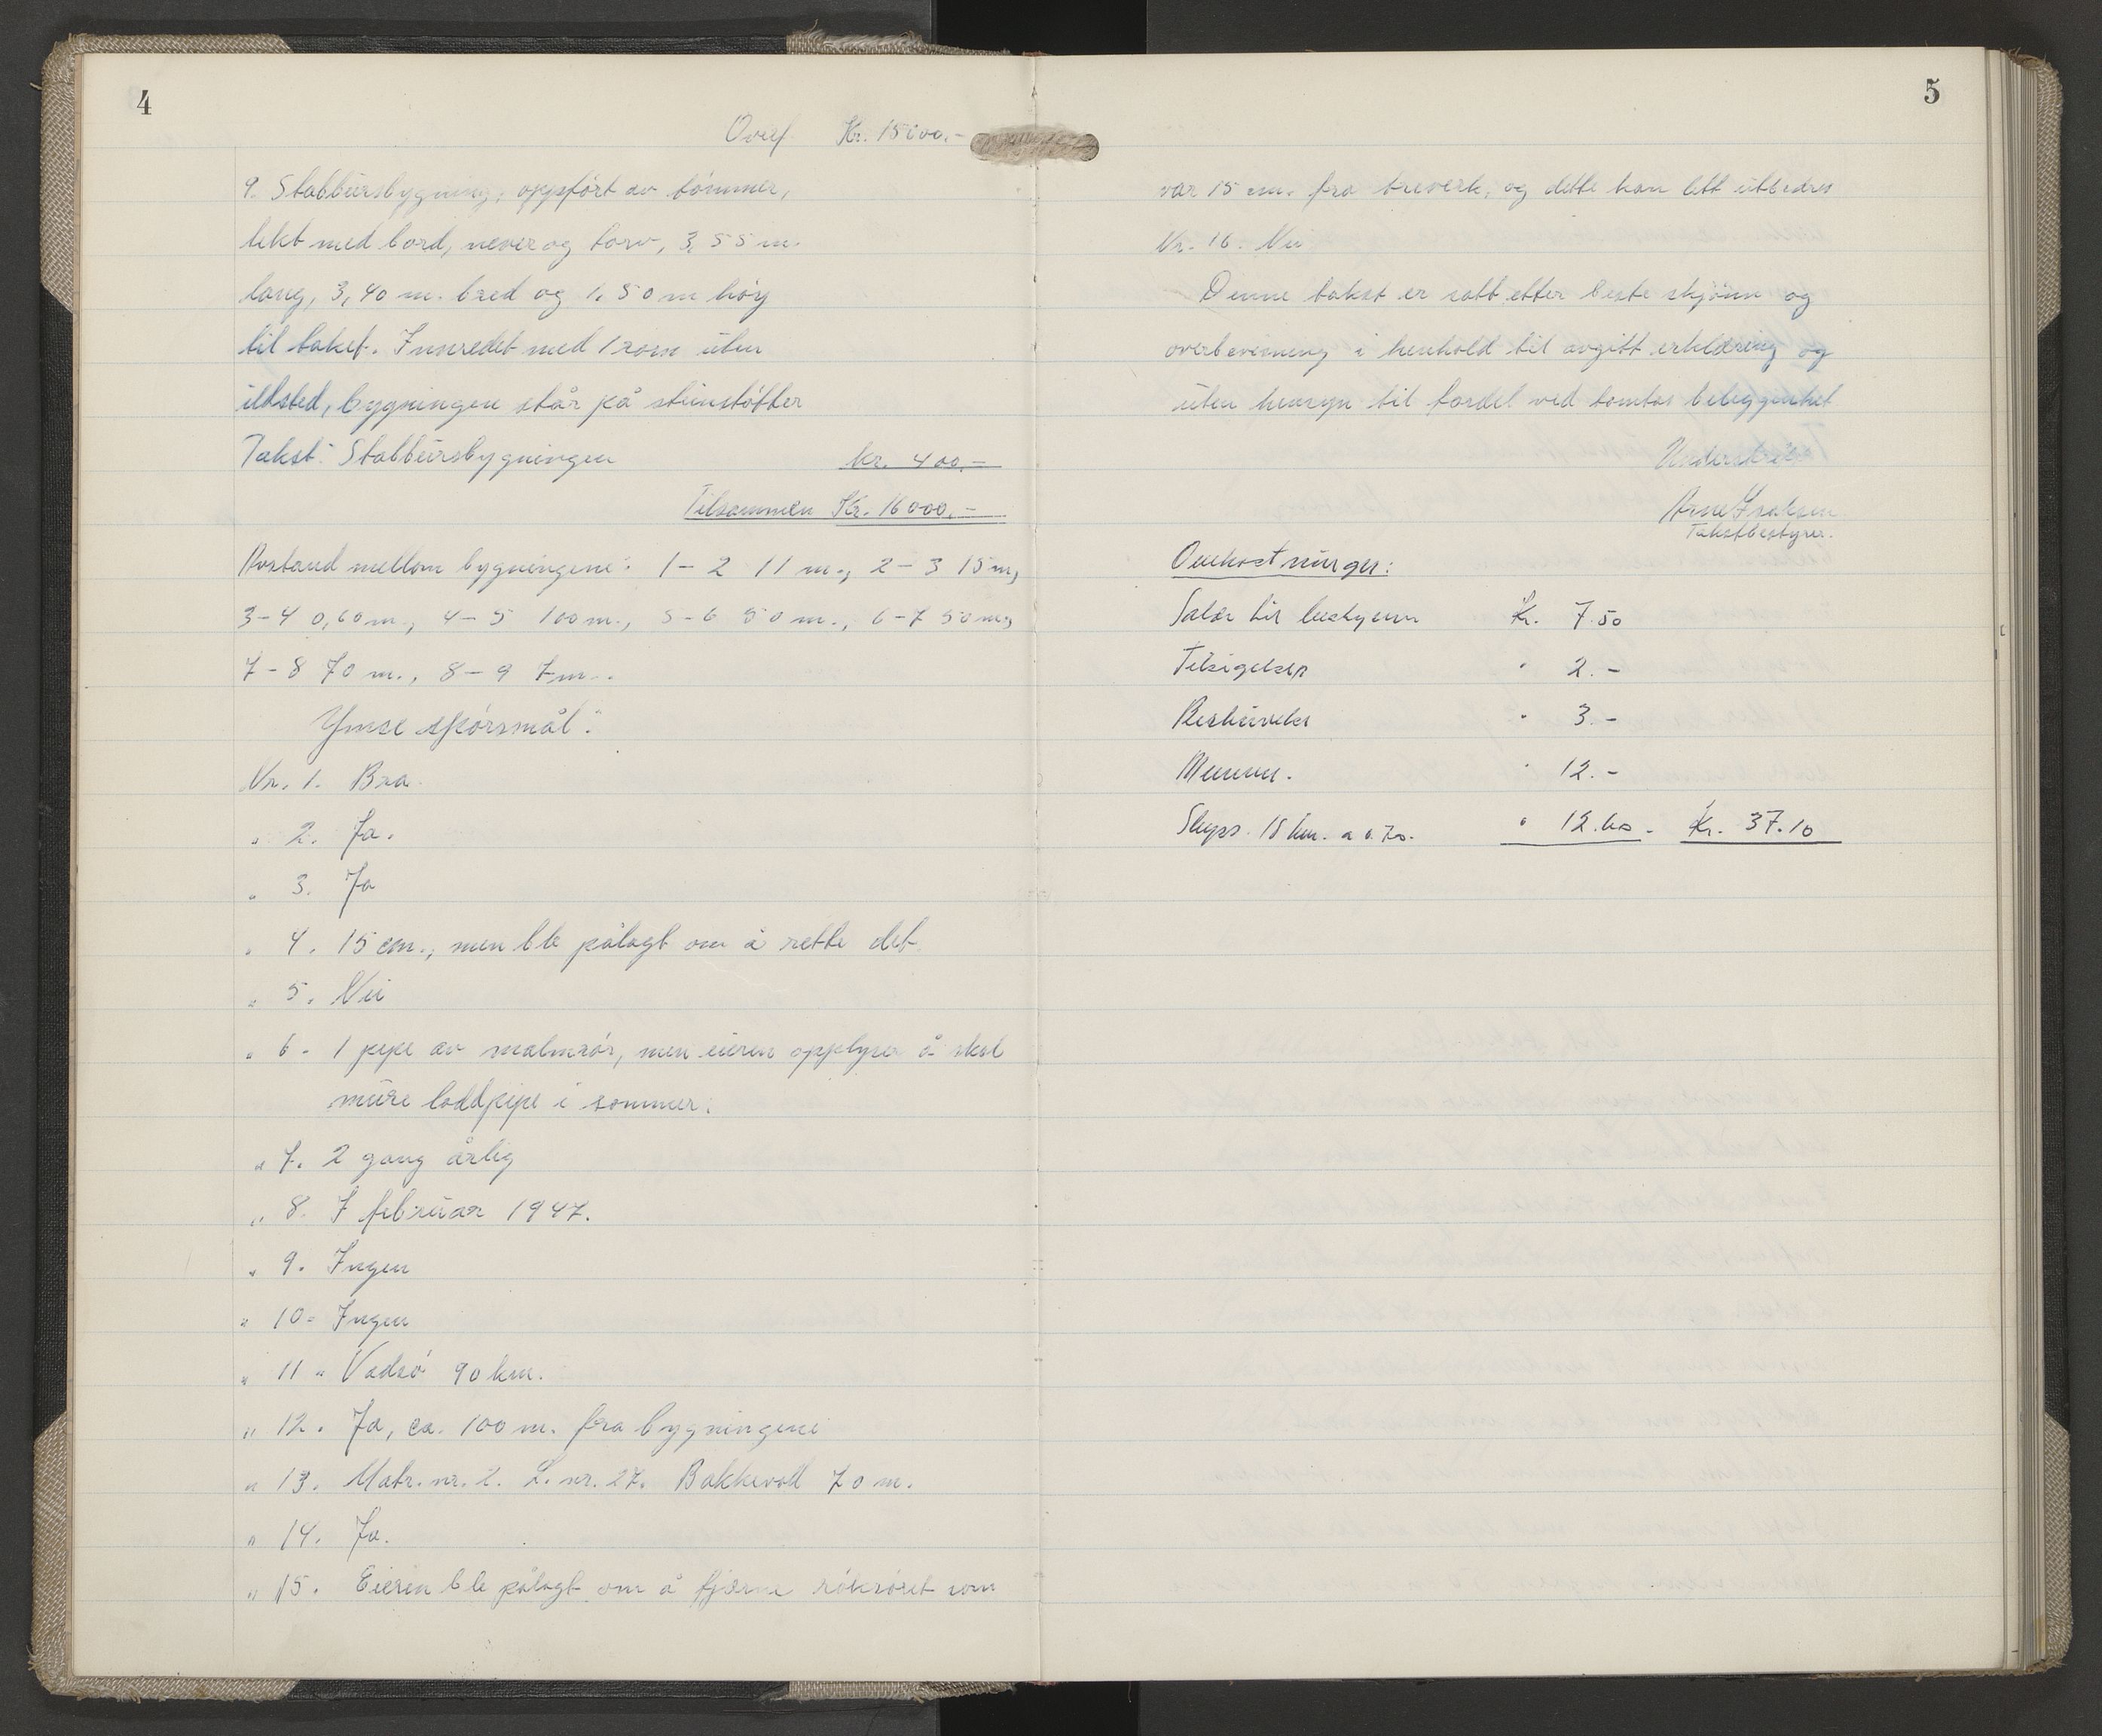 4
Overf. Kr. 15600.-
9. Stabbursbygning, oppført av tømmer,
tekt med bord, never og torv, 3,55 m.
lang, 3,40 m. bred og 1,50 m høy
til taket. Innredet med 1 rom uten
ildsted, bygningen står på steinstøtter
Takst: Stabbursbygningen kr. 400.-
Tilsammen Kr. 16000.-
Avstand mellom bygningene: 1-2 11 m., 2-3 15 m,
3-4 0,60 m., 4-5 100 m., 5-6 50 m., 6-7 50 m,
7-8 70 m., 8-9 7 m.
Ymse spørsmål:
Nr. 1. Bra.
" 2. Ja.
" 3. Ja
" 4. 15 cm., men ble pålagt om å rette det.
" 5. Nei
" 6. 1 pipe av malmrør, men eieren opplyser å skal
mure loddpipe i sommer.
" 7. 2 gang årlig
" 8. 7 februar 1947.
" 9. Ingen
" 10. Ingen
" 11. Vadsø 90 km.
" 12. Ja, ca. 100 m. fra bygningene
" 13. Matr. nr. 2. L. nr. 27. Bakkevoll 70 m.
" 14. Ja.
" 15. Eieren ble pålagt om å fjerne rökröret som
5
var 15 cm. fra treverk, og dette kan lett utbedres
Nr. 16. Nei
Denne takst er satt etter beste skjønn og
overbevisning i henhold til avgitt erklæring og
uten hensyn til fordel ved tomtas beleggenhet
Arne Isaksen
Takstbestyrer.
Omkostninger:
Salær til bestyreren Kr. 7.50
Tilsigelser " 2.-
Beskrivelse " 3.-
" 12.-
Skyss. 18 km. a 0.70. " 12.60. Kr. 37.10